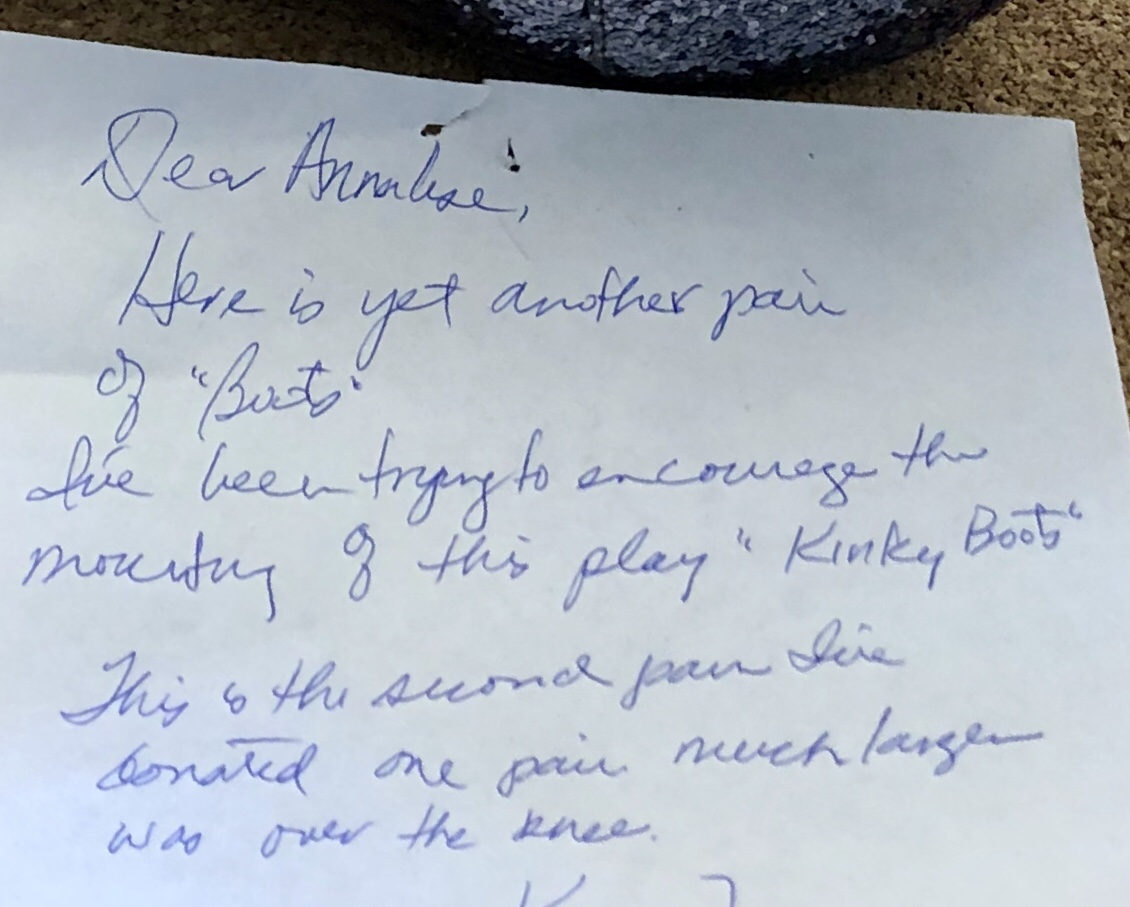 Dear Annalise,
Here is yet another pair
of "Boots"
I've been trying to encourage the
mounting of this play "Kinky Boots"
This is the second pair I've
donated one pair much larger
was over the knee.